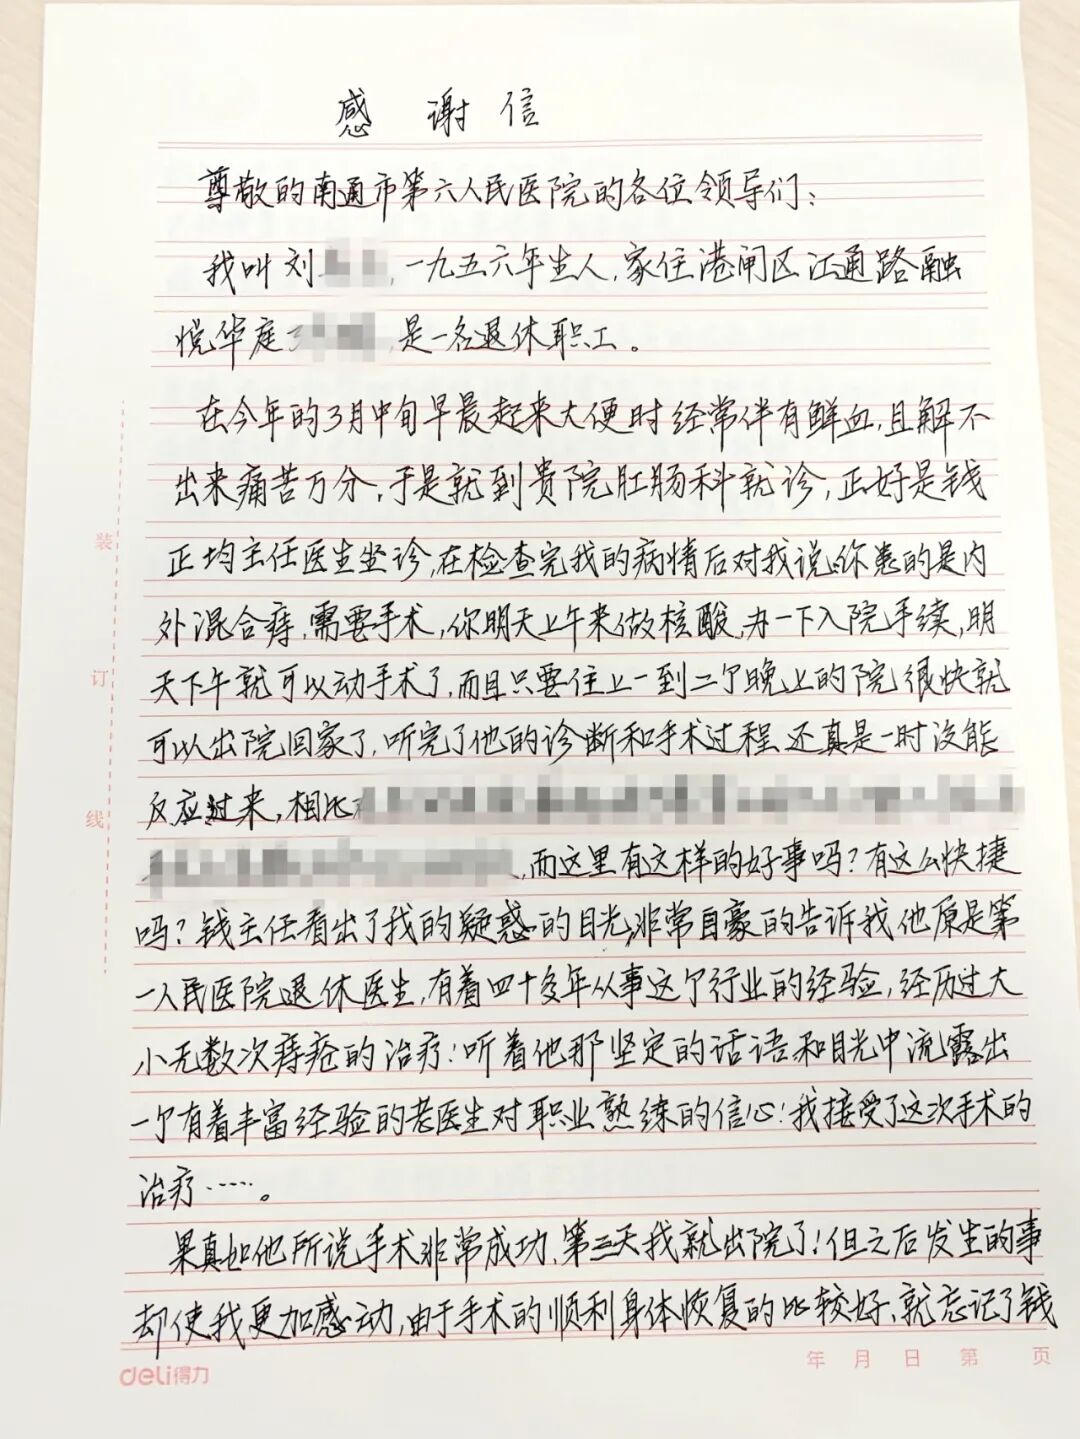 感谢信
尊敬的南通市第六人民医院的各位领导们:
我叫刘,一九五六年生人,家住港闸区江通路融
悦华庭,是一名退休职工。
在今年的3月中旬早晨起来大便时经常伴有鲜血,且解不
出来痛苦万分,于是就到贵院肛肠科就诊,正好是钱
正均主任医生坐诊,在检查完我的病情后对我说:你患的是内
外混合痔,需要手术,你明天上午来做核酸,办一下入院手续,明
天下午就可以动手术了,而且只要住上一到二个晚上的院很快就
可以出院回家了,听完了他的诊断和手术过程还真是一时没能
反应过来,相比
,而这里有这样的好事吗?有这么快捷
吗?钱主任看出了我的疑惑的目光,非常自豪的告诉我他原是第
一人民医院退休医生,有着四十多年从事这个行业的经验,经历过大
小无数次痔疮的治疗!听着他那坚定的话语和目光中流露出
一个有着丰富经验的老医生对职业熟练的信心!我接受了这次手术的
治疗……。
果真如他所说手术非常成功,第三天我就出院了!但之后发生的事
却使我更加感动,由于手术的顺利身体恢复的比较好,就忘记了钱
装
订
线
deli得力
年 月 日 第 页